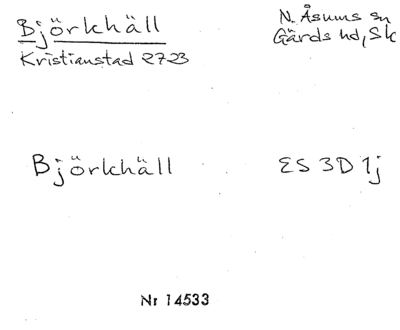 Björkhäll
N. Åsums sn
Kristianstad 2723
Gärds hd, Sk
Björkhäll
ES 3D 1j
Nr 14533